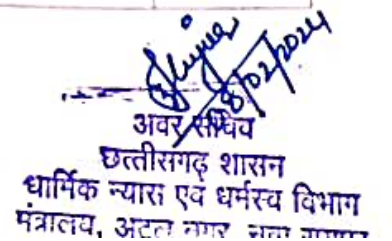 8/02/2024
अवर सचिव
छत्तीसगढ़ शासन
धार्मिक न्यास एवं धर्मस्व विभाग
मंत्रालय, अटल नगर, नवा रायपुर